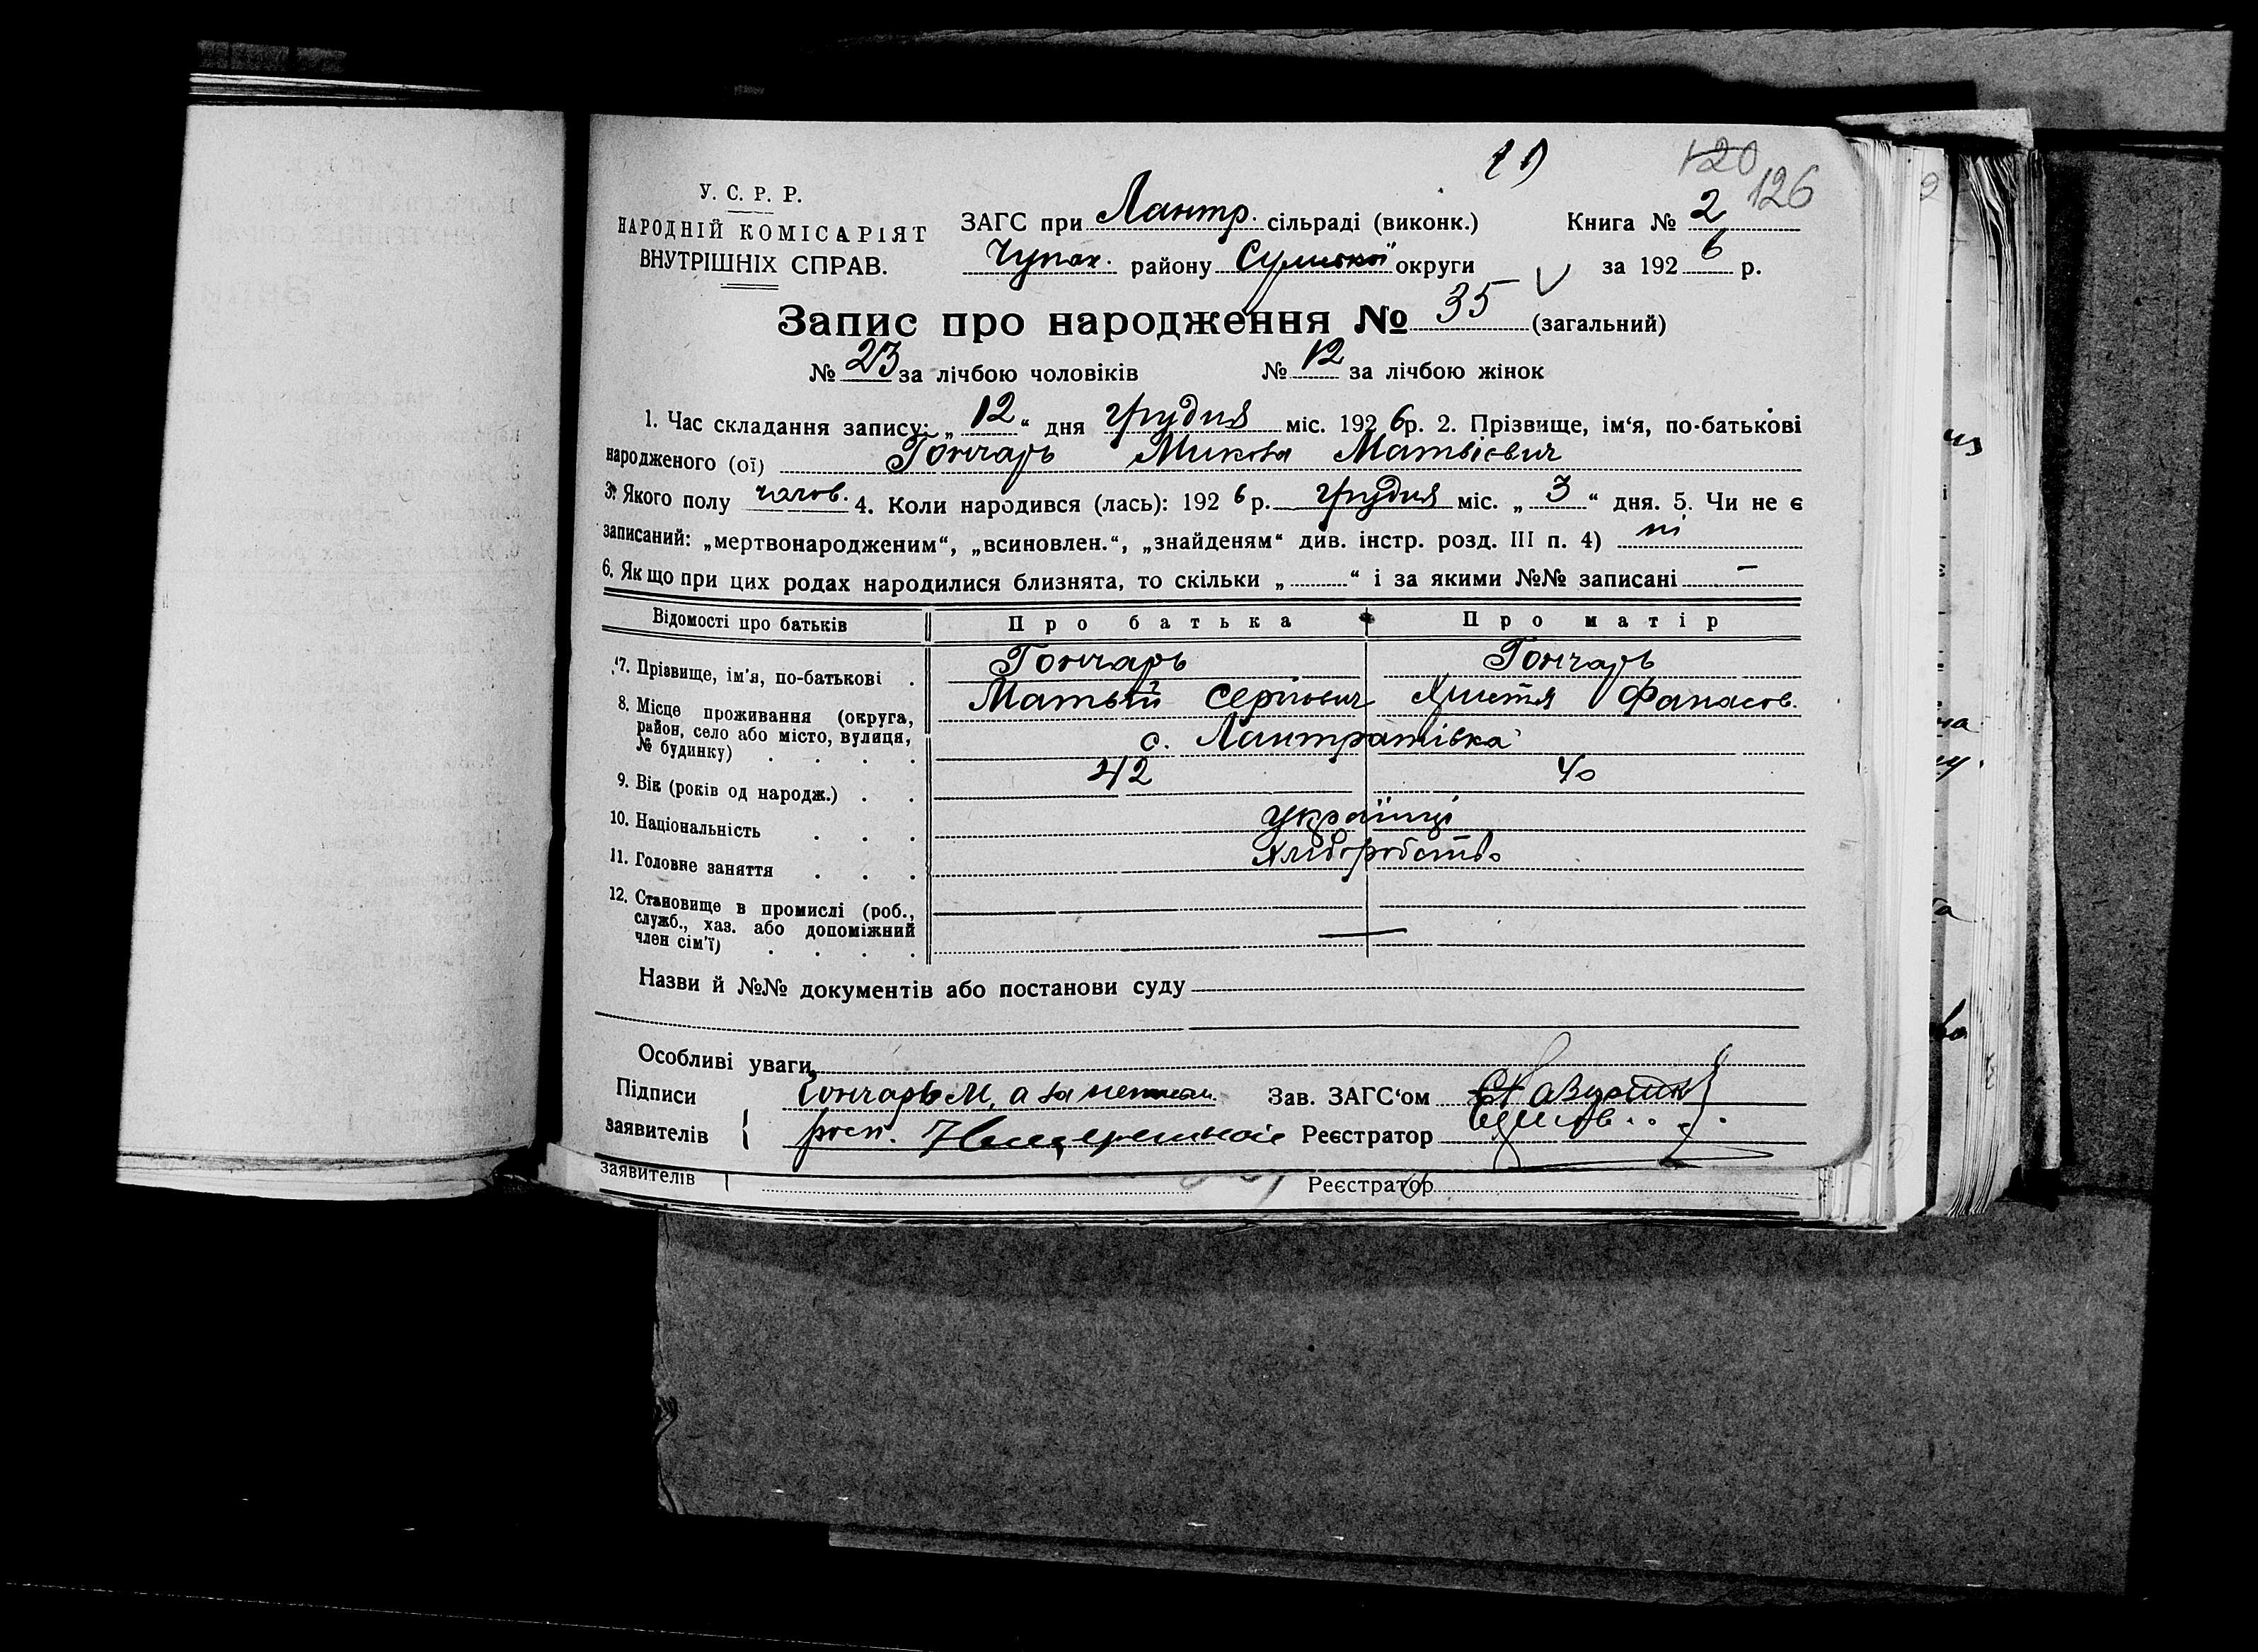 120
126
У. С. Р. Р.
НАРОДНІЙ КОМІСАРІЯТ
ВНУТРІШНІХ СПРАВ.
ЗАГС при Лантр. сільраді (виконк.) Книга № 2
Чупах. району Сумської округи за 1926 р.
Запис про народження № 35 (загальний)
№ 23 за лічбою чоловіків № 12 за лічбою жінок
1. Час складання запису: „ 12 “ дня грудня міс. 1926р. 2. Прізвище, ім‘я, по-батькові
народженого (ої) Гончарь Микола Матвієвич
3. Якого полу чолов. 4. Коли народився (лась): 1926р. грудня міс. „ 3 “ дня. 5. Чи не є
записаний: „мертвонародженим“, „всиновлен.“, „знайденям“ див. інстр. розд. III п. 4) ні
6. Якщо при цих родах народилися близнята, то скільки „ “ і за якими №№ записані –
Відомості про батьків Про батька Про матір
7. Прізвище, ім'я, по-батькові . Гончарь Гончарь
Матвій Сергіович Христя Фанасов.
8. Місце проживання (округа,
район, село або місто, вулиця,
№ будинку) . . . . с. Лантратівка
9. Вік (років од народж.) . . 42 40
10. Національність . . . українці
11. Головне заняття . . . хліборобство
12. Становище в промислі (роб.,
служб., хаз. або допоміжний
член сім'ї) . . . . —
Назви й №№ документів або постанови суду
Особливі уваги
Підписи Гончарь М, а за Зав. ЗАГС‘ом
заявителів { росп. Реєстратор
заявителів Реєстратор